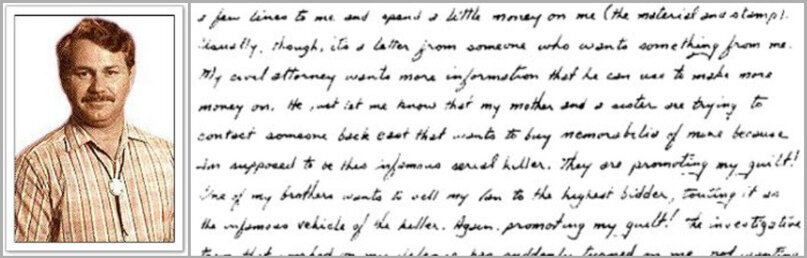 a few lines to me and spend a little money on me (the material and stamp).
Usually, though, its a letter from someone who wants something from me.
My civil attorney wants more information that he can use to make more
money on. He just let me know that my mother and a sister are trying to
contact someone back east that wants to buy memorabilia of mine because
Im supposed to be this infamous serial killer. They are promoting my guilt!
One of my brothers wants to sell my van to the highest bidder, touting it as
the infamous vehicle of the killer. Again, promoting my guilt! The investigative
team that worked on my defense has suddenly turned on me, not wanting